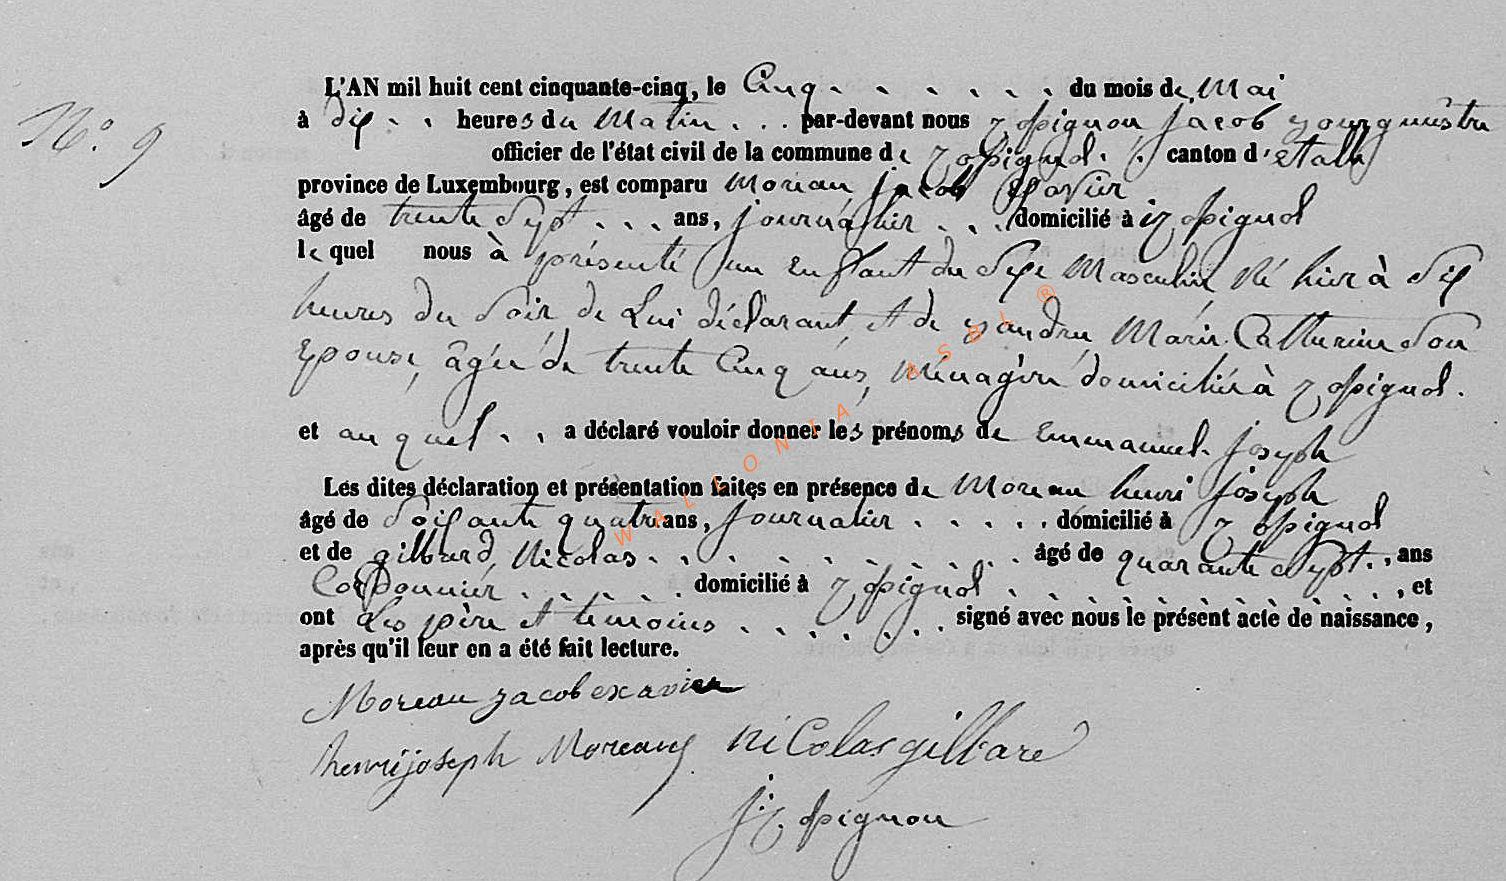 N.° 9
L'AN mil huit cent cinquante-cinq, le Cinq du mois de Mai
à dix heures du Matin par-devant nous Rossignon jacob Bourgmestre
officier de l'état civil de la commune de Rossignol canton d'Etalle
province de Luxembourg, est comparu Moreau jacob Exavier
âgé de trente Sept ans, journalier domicilié à Rossignol
lequel nous à présenté un Enffant du Sexe Masculin Né hier à Six
heures du Soir de Lui déclarant et de Marie Catherine Son
Epouse, âgée de trente Cinq ans, Ménagère domiciliée à Rossignol.
et auquel a déclaré vouloir donner les prénoms de Emmanuel joseph
Les dites déclaration et présentation faites en présence de Moreau henri joseph
âgé de Soixante quatre ans, journalier domicilié à Rossignol
et de gillard, Nicolas âgé de quarante Sept, ans
Cordonnier domicilié à Rossignol, et
ont Les père et temoins signé avec nous le présent acte de naissance,
après qu'il leur en a été fait lecture.
Moreau jacob exavier
henrijoseph Moreaux nicolas gillare
j: Rossignon
WALLONIA ASBL ®